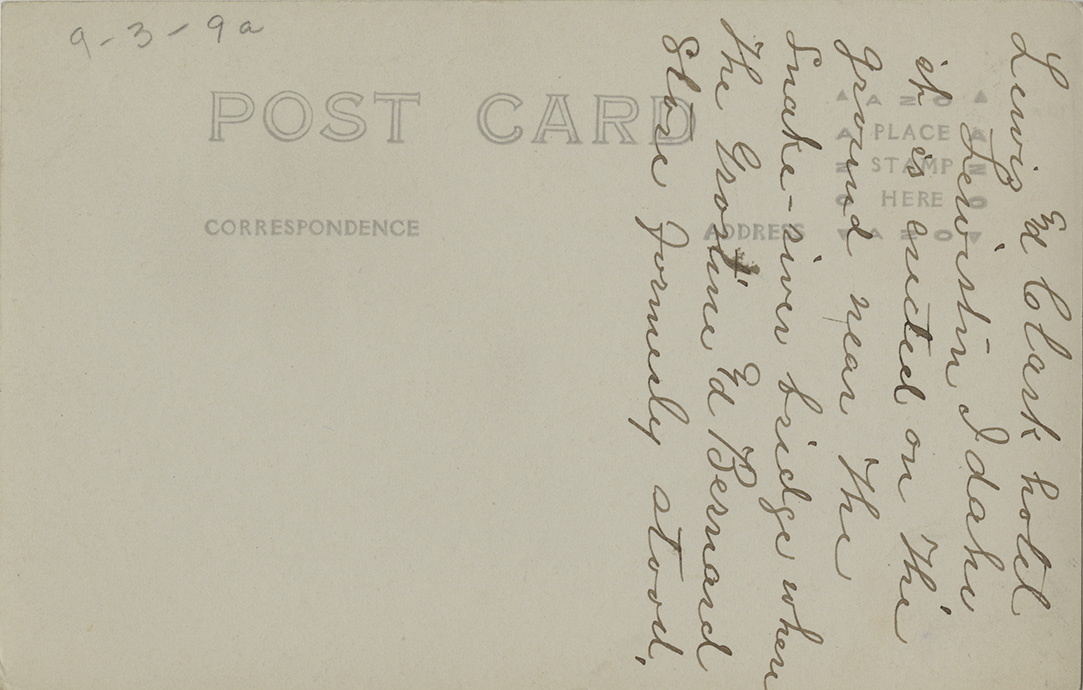 9-3-9a
POST CARD
CORRESPONDENCE
ADDRESS
AZO
PLACE
STAMP
HERE
AZO
Lewis Ed Clark hotel
Lewistin Idaho
it is erected on the
ground near the
Snake-river bridge when
The Grostine Ed Bernard
Store formerly stood,